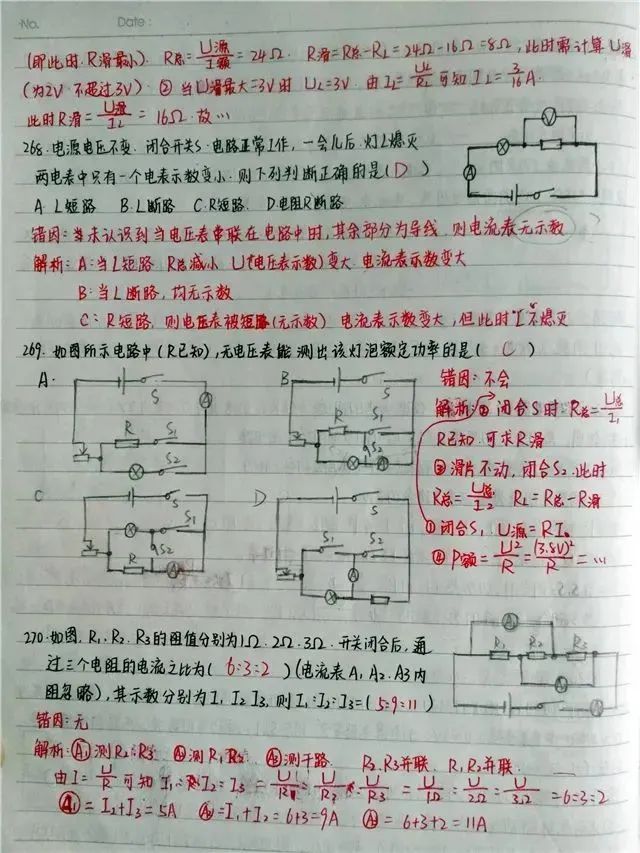 No.
Date:
(即此时 R滑最小). R总=U源/I额=24Ω. R滑=R总-RL=24Ω-16Ω=8Ω, 此时需计算U滑
(为2V 不超过3V) ② 当U滑最大=3V时 UL=3V. 由IL=UL/RL 可知 IL=3/16 A.
此时R滑=U滑/IL=16Ω. 故…
268. 电源电压不变. 闭合开关S. 电路正常工作, 一会儿后. 灯L熄灭
两电表中只有一个电表示数变小. 则下列判断正确的是(D)
A. L短路 B. L断路 C. R短路. D. 电阻R断路
错因: 当未认识到当电压表串联在电路中时, 其余部分为导线. 则电流表无示数
解析: A: 当L短路 R总减小 U(电压表示数)变大. 电流表示数变大
B: 当L断路, 均无示数
C: R短路, 则电压表被短路(无示数) 电流表示数变大, 但此时"L"不熄灭
269. 如图所示电路中(R已知), 无电压表能测出该灯泡额定功率的是( C )
A.
S
A
R
S1
S2
B
S
R
S1
S2
A
C
S
S1
S2
R
A
D
S
S1
S2
A
错因: 不会
解析: ② 闭合S时. R总=U总/I1
R已知. 可求R滑
③ 滑片不动, 闭合S2. 此时
R总=U总/I2 RL=R总-R滑
① 闭合S1, U源=RI。
④ P额=U²/R=(3.8V)²/R=…
270. 如图. R1. R2. R3的阻值分别为1Ω. 2Ω. 3Ω. 开关闭合后, 通
过三个电阻的电流之比为( 6:3:2 ) (电流表A1, A2. A3内
阻忽略), 其示数分别为I1 I2 I3, 则I1:I2:I3=( 5:9:11 )
R1
R2
R3
错因: 无
解析: A1测R2 R3 A2测R1, R2 A3测干路. R2. R3并联. R1 R2并联.
由I=U/R 可知 I1:I2:I3=U/R1:U/R2:U/R3=U/1Ω:U/2Ω:U/3Ω=6:3:2
A1=I2+I3=5A A2=I1+I2=6+3=9A A3=6+3+2=11A